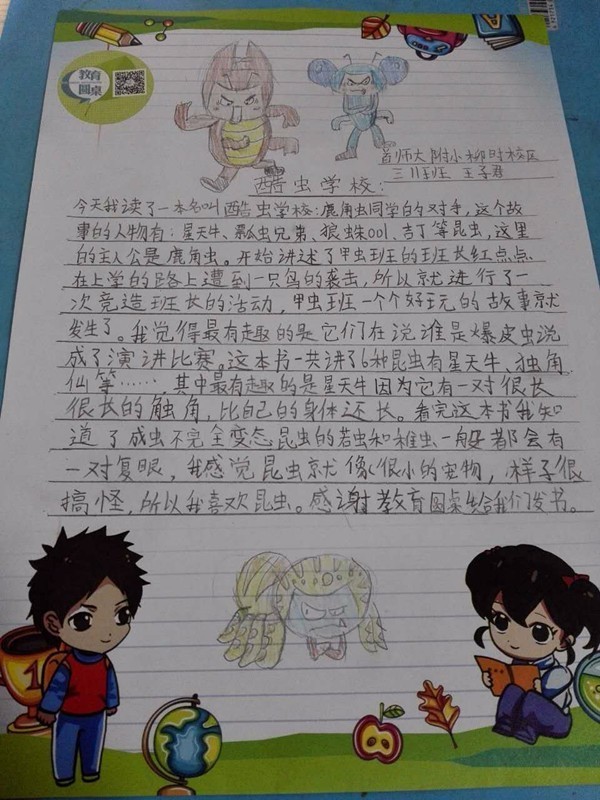 教育
圆桌
首师大附小柳明校区
三11班 王子君
酷虫学校:
今天我读了一本名叫酷虫学校:鹿角虫同学的对手,这个故
事的人物有:星天牛、瓢虫兄弟、狼蛛001、吉丁等昆虫,这里
的主人公是鹿角虫。开始讲述了甲虫班的班长红点点
在上学的路上遭到一只鸟的袭击,所以就进行了一
次竞选班长的活动,甲虫班一个个好玩的故事就
发生了。我觉得最有趣的是它们在说谁是爆皮虫说
成了演讲比赛。这本书一共讲了6种昆虫有星天牛、独角
仙等……其中最有趣的是星天牛因为它有一对很长
很长的触角,比自己的身体还长。看完这本书我知
道了成虫不完全变态昆虫的若虫和稚虫一般都会有
一对复眼,我感觉昆虫就像很小的宠物,样子很
搞怪,所以我喜欢昆虫。感谢教育圆桌给我们发书。
1